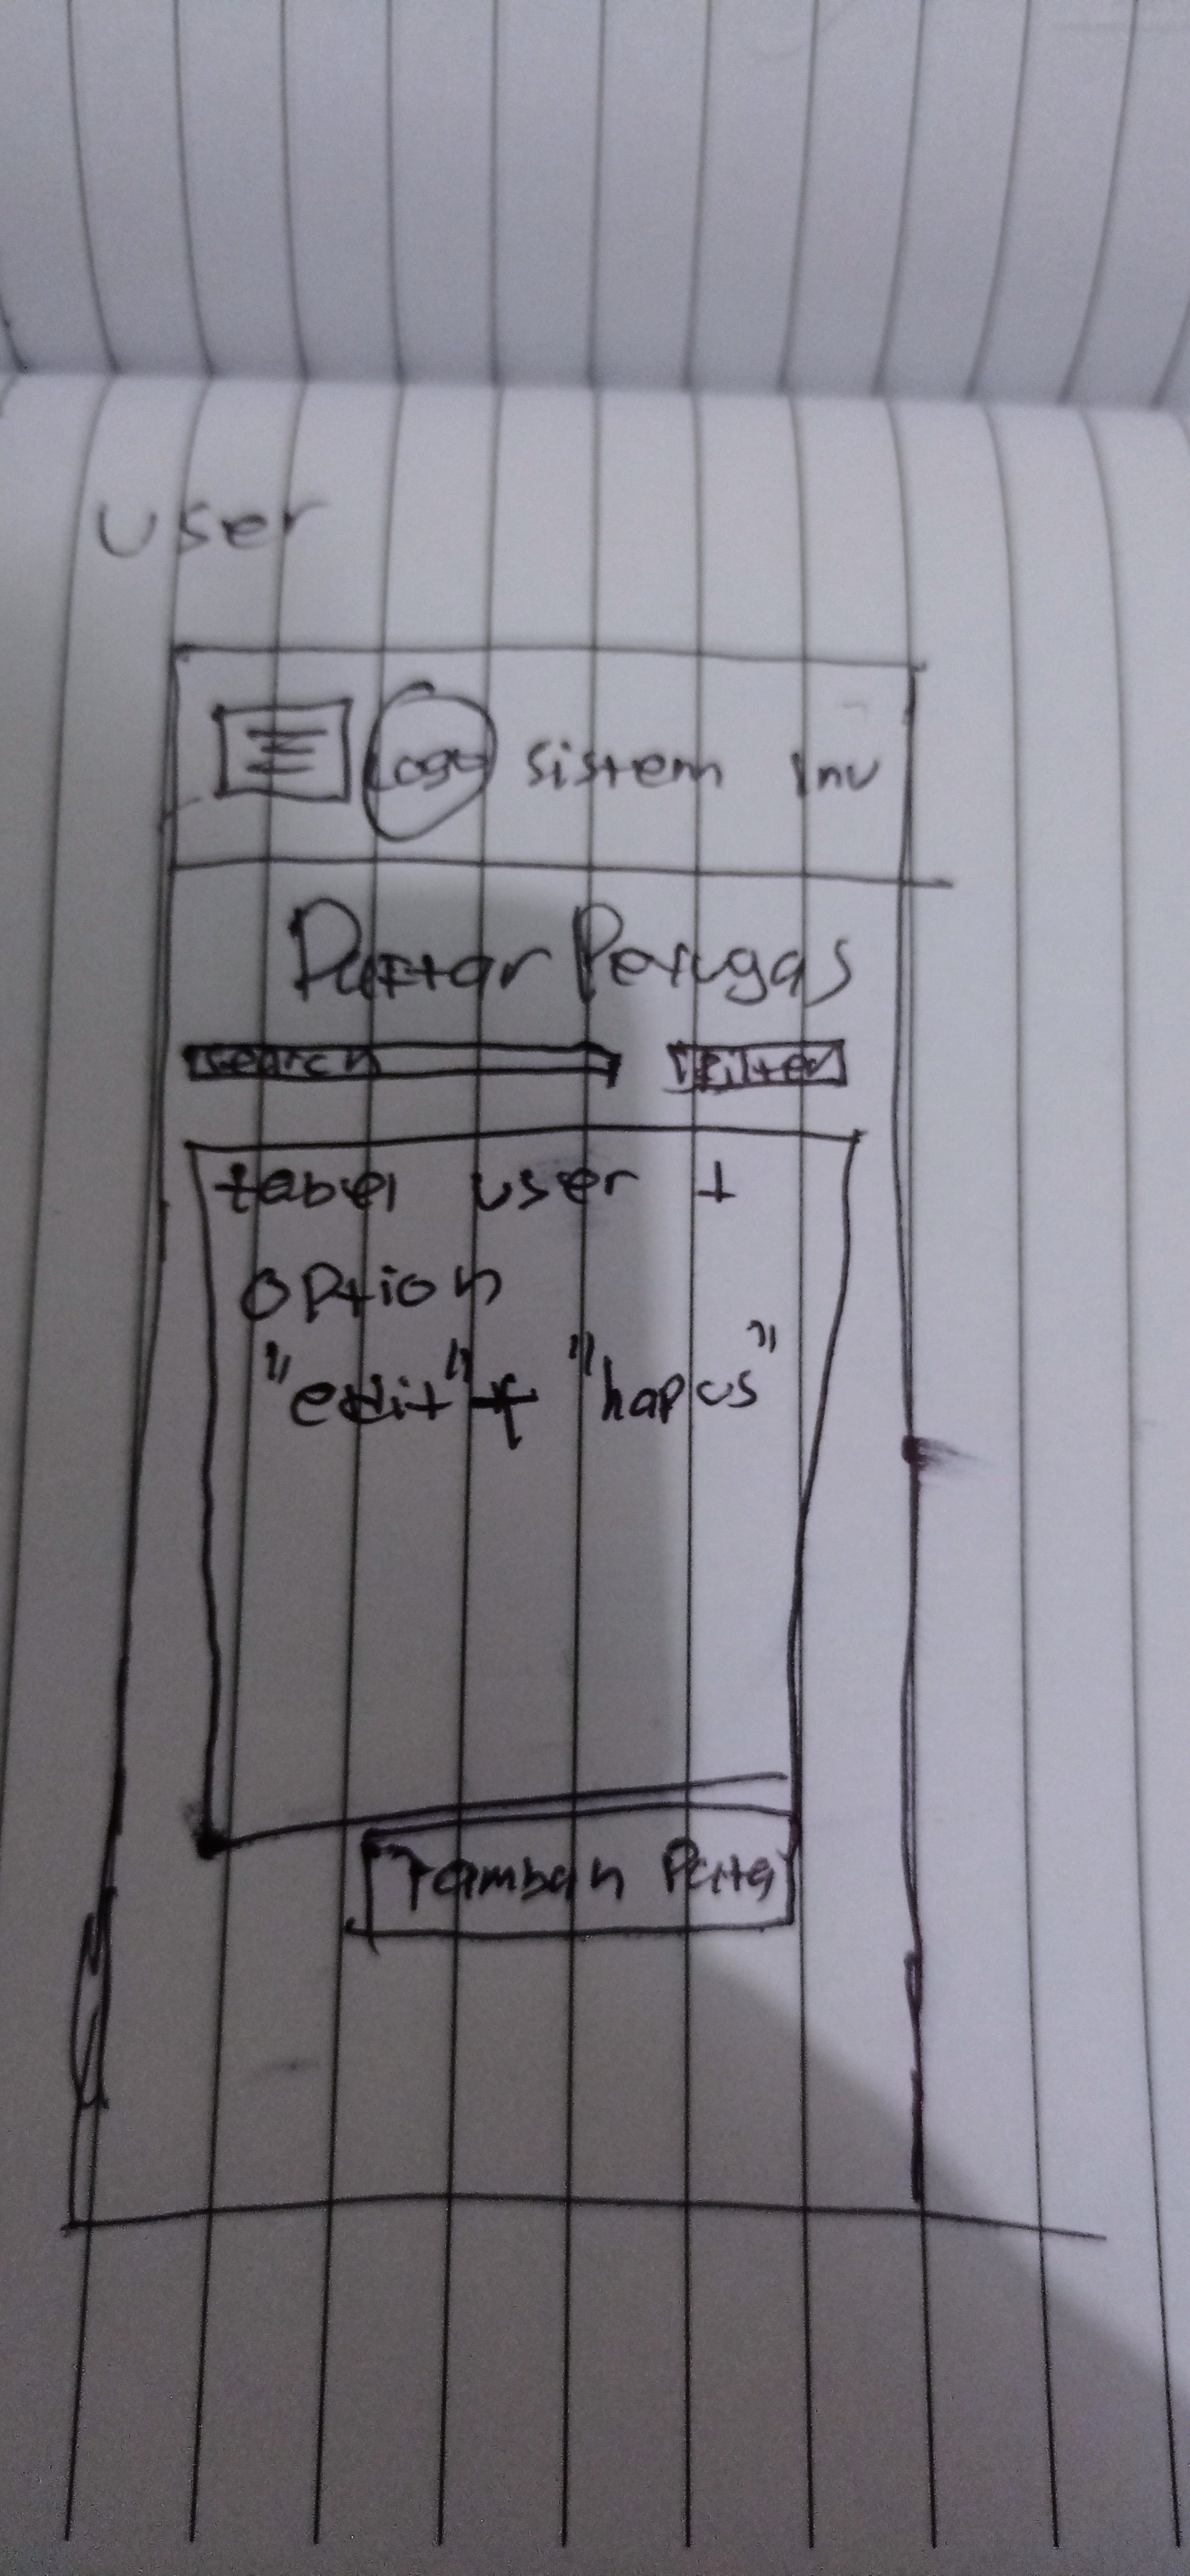 User
Logo sistem Inv
Daftar Petugas
search Filter
tabel user +
option
"edit" + "hapus"
Tambah Data